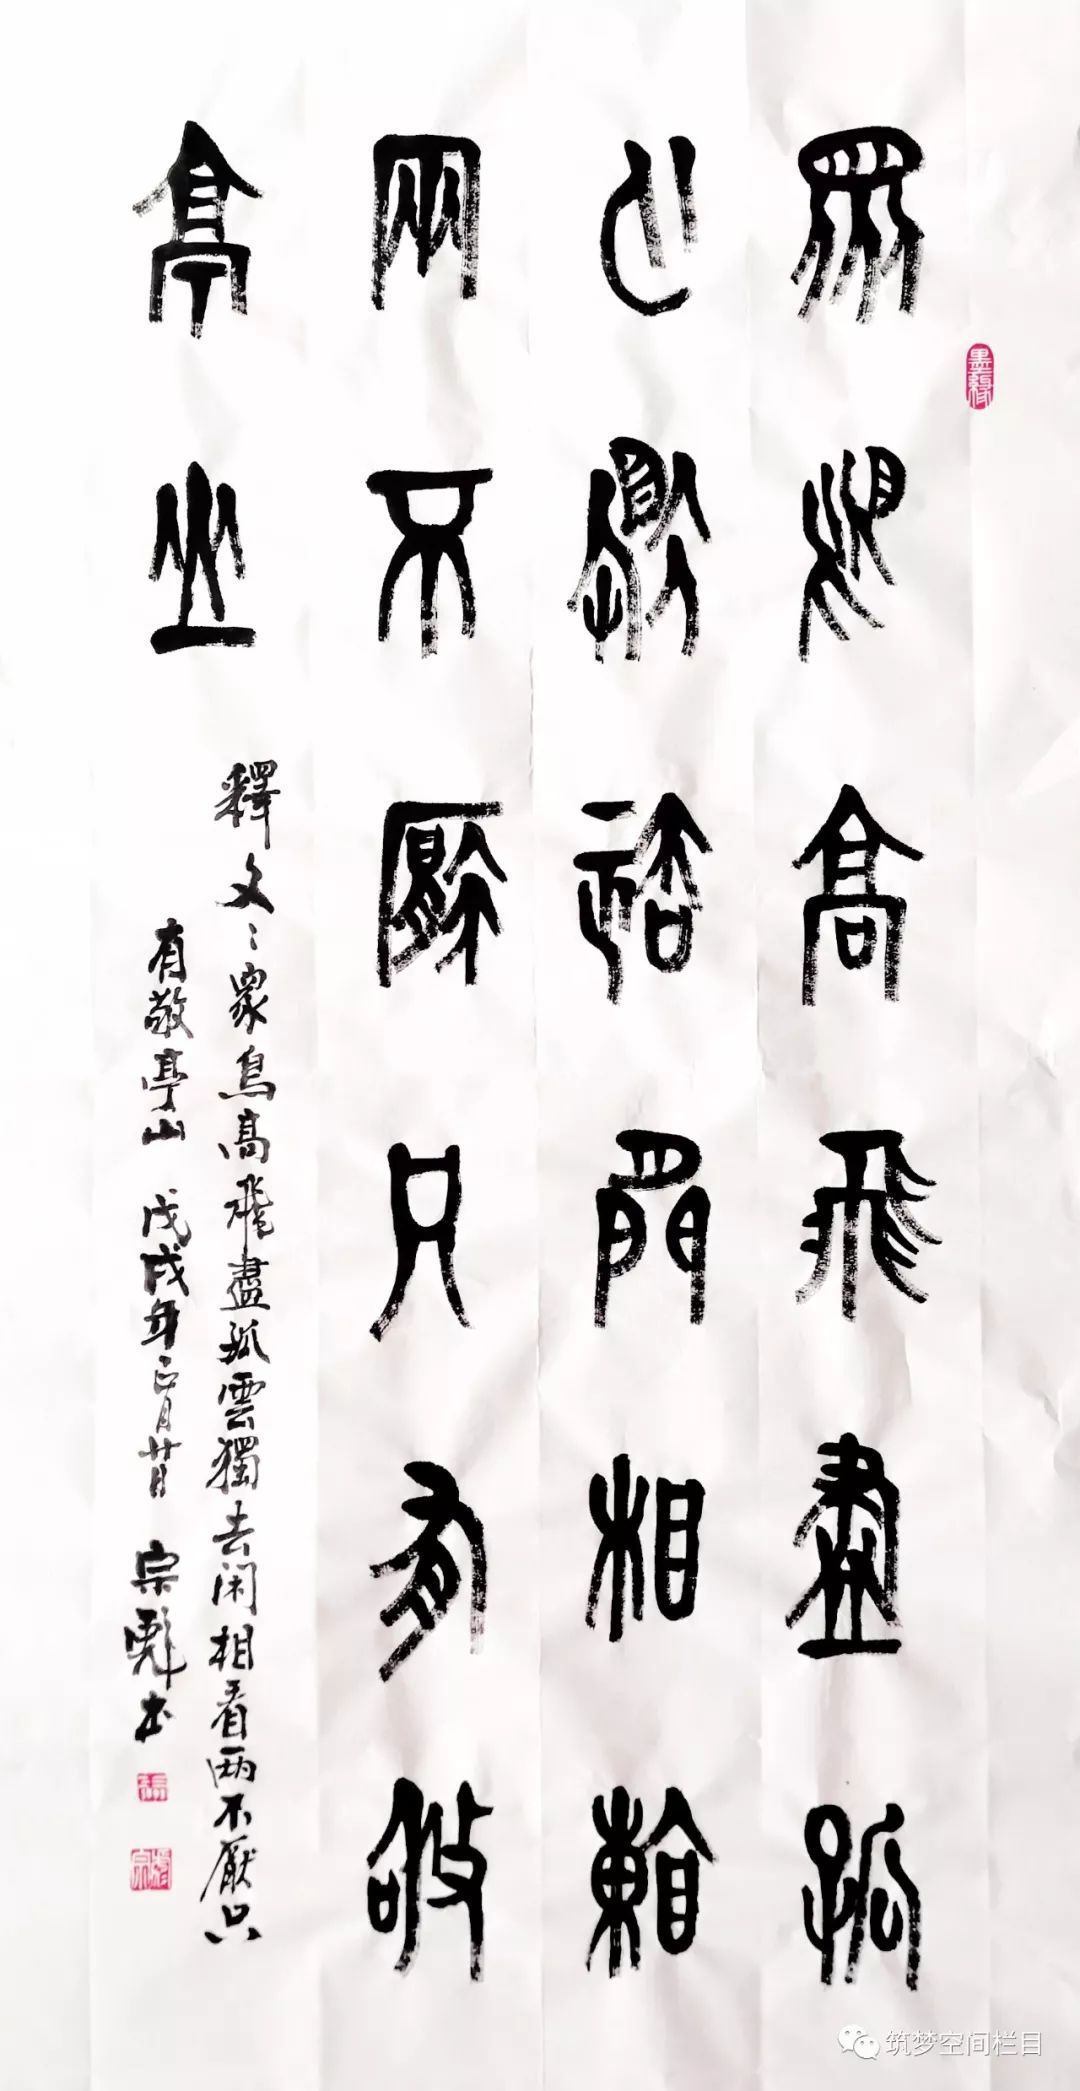 墨緣
眾鳥高飛盡孤
云獨去閒相看
兩不厭只有敬
亭山
釋文：眾鳥高飛盡孤雲獨去闲相看两不厭只
有敬亭山 戊戌年正月廿日 宗彪书
筑梦空间栏目